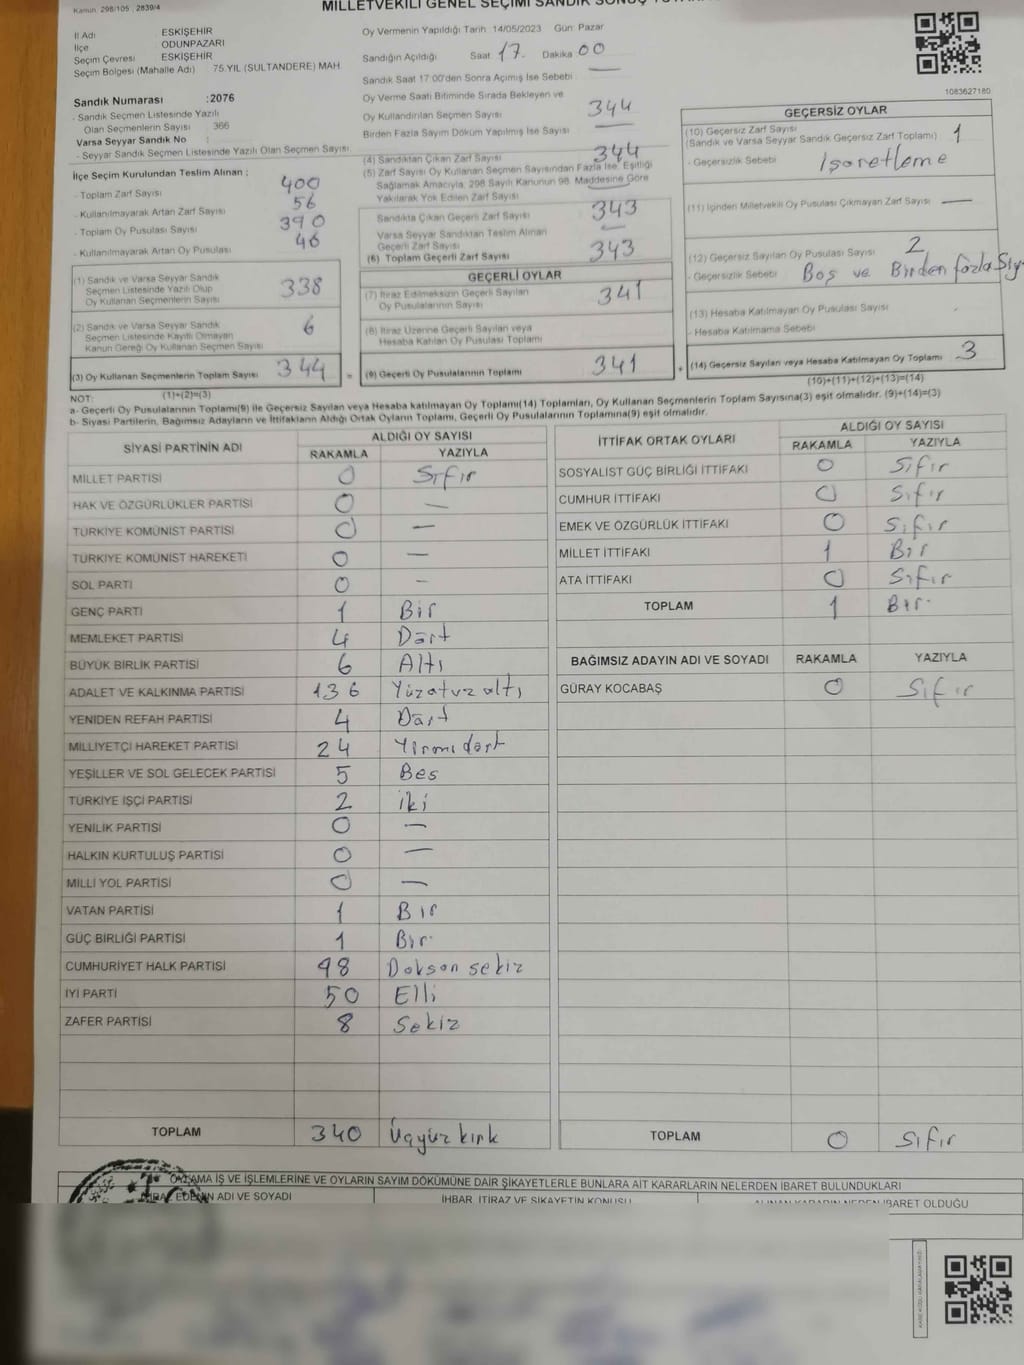 Kanun: 298/105, 2839/4
MİLLETVEKİLİ GENEL SEÇİMİ SANDIK SONUÇ
İl Adı ESKİŞEHİR
İlçe ODUNPAZARI
Seçim Çevresi ESKİŞEHİR
Seçim Bölgesi (Mahalle Adı) 75.YIL (SULTANDERE) MAH.
Sandık Numarası :2076
- Sandık Seçmen Listesinde Yazılı
Olan Seçmenlerin Sayısı : 366
Varsa Seyyar Sandık No :
- Seyyar Sandık Seçmen Listesinde Yazılı Olan Seçmen Sayısı:
İlçe Seçim Kurulundan Teslim Alınan :
- Toplam Zarf Sayısı 400
- Kullanılmayarak Artan Zarf Sayısı 56
- Toplam Oy Pusulası Sayısı 390
- Kullanılmayarak Artan Oy Pusulası 46
(1) Sandık ve Varsa Seyyar Sandık
Seçmen Listesinde Yazılı Olup
Oy Kullanan Seçmenlerin Sayısı 338
(2) Sandık ve Varsa Seyyar Sandık
Seçmen Listesinde Kayıtlı Olmayan
Kanun Gereği Oy Kullanan Seçmen Sayısı 6
(3) Oy Kullanan Seçmenlerin Toplam Sayısı 344 =
(1)+(2)=(3)
Oy Vermenin Yapıldığı Tarih: 14/05/2023 Gün: Pazar
Sandığın Açıldığı Saat 17. Dakika 00
Sandık Saat 17:00'den Sonra Açılmış İse Sebebi : —
Oy Verme Saati Bitiminde Sırada Bekleyen ve
Oy Kullandırılan Seçmen Sayısı 344
Birden Fazla Sayım Döküm Yapılmış İse Sayısı —
(4) Sandıktan Çıkan Zarf Sayısı 344
(5) Zarf Sayısı Oy Kullanan Seçmen Sayısından Fazla İse, Eşitliği
Sağlamak Amacıyla, 298 Sayılı Kanunun 98. Maddesine Göre
Yakılarak Yok Edilen Zarf Sayısı —
Sandıkta Çıkan Geçerli Zarf Sayısı 343
Varsa Seyyar Sandıktan Teslim Alınan
Geçerli Zarf Sayısı —
(6) Toplam Geçerli Zarf Sayısı 343
GEÇERLİ OYLAR
(7) İtiraz Edilmeksizin Geçerli Sayılan
Oy Pusulasının Sayısı 341
(8) İtiraz Üzerine Geçerli Sayılan veya
Hesaba Katılan Oy Pusulası Toplamı
(9) Geçerli Oy Pusulalarının Toplamı 341 +
1083627180
GEÇERSİZ OYLAR
(10) Geçersiz Zarf Sayısı
(Sandık ve Varsa Seyyar Sandık Geçersiz Zarf Toplamı) 1
- Geçersizlik Sebebi : İşaretleme
(11) İçinden Milletvekili Oy Pusulası Çıkmayan Zarf Sayısı —
(12) Geçersiz Sayılan Oy Pusulası Sayısı 2
- Geçersizlik Sebebi : Boş ve Birden fazla
(13) Hesaba Katılmayan Oy Pusulası Sayısı
- Hesaba Katılmama Sebebi
(14) Geçersiz Sayılan veya Hesaba Katılmayan Oy Toplamı 3
(10)+(11)+(12)+(13)=(14)
NOT:
a- Geçerli Oy Pusulalarının Toplamı(9) ile Geçersiz Sayılan veya Hesaba katılmayan Oy Toplamı(14) Toplamları, Oy Kullanan Seçmenlerin Toplam Sayısına(3) eşit olmalıdır. (9)+(14)=(3)
b- Siyasi Partilerin, Bağımsız Adayların ve İttifakların Aldığı Ortak Oyların Toplamı, Geçerli Oy Pusulalarının Toplamına(9) eşit olmalıdır.
SİYASİ PARTİNİN ADI ALDIĞI OY SAYISI
RAKAMLA YAZIYLA
MİLLET PARTİSİ 0 Sıfır
HAK VE ÖZGÜRLÜKLER PARTİSİ 0 —
TÜRKİYE KOMÜNİST PARTİSİ 0 —
TÜRKİYE KOMÜNİST HAREKETİ 0 —
SOL PARTİ 0 —
GENÇ PARTİ 1 Bir
MEMLEKET PARTİSİ 4 Dört
BÜYÜK BİRLİK PARTİSİ 6 Altı
ADALET VE KALKINMA PARTİSİ 136 Yüzotuz altı
YENİDEN REFAH PARTİSİ 4 Dört
MİLLİYETÇİ HAREKET PARTİSİ 24 Yirmi dört
YEŞİLLER VE SOL GELECEK PARTİSİ 5 Beş
TÜRKİYE İŞÇİ PARTİSİ 2 iki
YENİLİK PARTİSİ 0 —
HALKIN KURTULUŞ PARTİSİ 0 —
MİLLİ YOL PARTİSİ 0 —
VATAN PARTİSİ 1 Bir
GÜÇ BİRLİĞİ PARTİSİ 1 Bir
CUMHURİYET HALK PARTİSİ 98 Doksan sekiz
İYİ PARTİ 50 Elli
ZAFER PARTİSİ 8 Sekiz
TOPLAM 340 Üçyüz kırk
İTTİFAK ORTAK OYLARI ALDIĞI OY SAYISI
RAKAMLA YAZIYLA
SOSYALİST GÜÇ BİRLİĞİ İTTİFAKI 0 Sıfır
CUMHUR İTTİFAKI 0 Sıfır
EMEK VE ÖZGÜRLÜK İTTİFAKI 0 Sıfır
MİLLET İTTİFAKI 1 Bir
ATA İTTİFAKI 0 Sıfır
TOPLAM 1 Bir
BAĞIMSIZ ADAYIN ADI VE SOYADI RAKAMLA YAZIYLA
GÜRAY KOCABAŞ 0 Sıfır
TOPLAM 0 Sıfır
OYLAMA İŞ VE İŞLEMLERİNE VE OYLARIN SAYIM DÖKÜMÜNE DAİR ŞİKAYETLERLE BUNLARA AİT KARARLARIN NELERDEN İBARET BULUNDUKLARI
ADI VE SOYADI
İHBAR, İTİRAZ VE ŞİKAYETİN KONUSU
ALINAN KARARIN NEDEN İBARET OLDUĞU